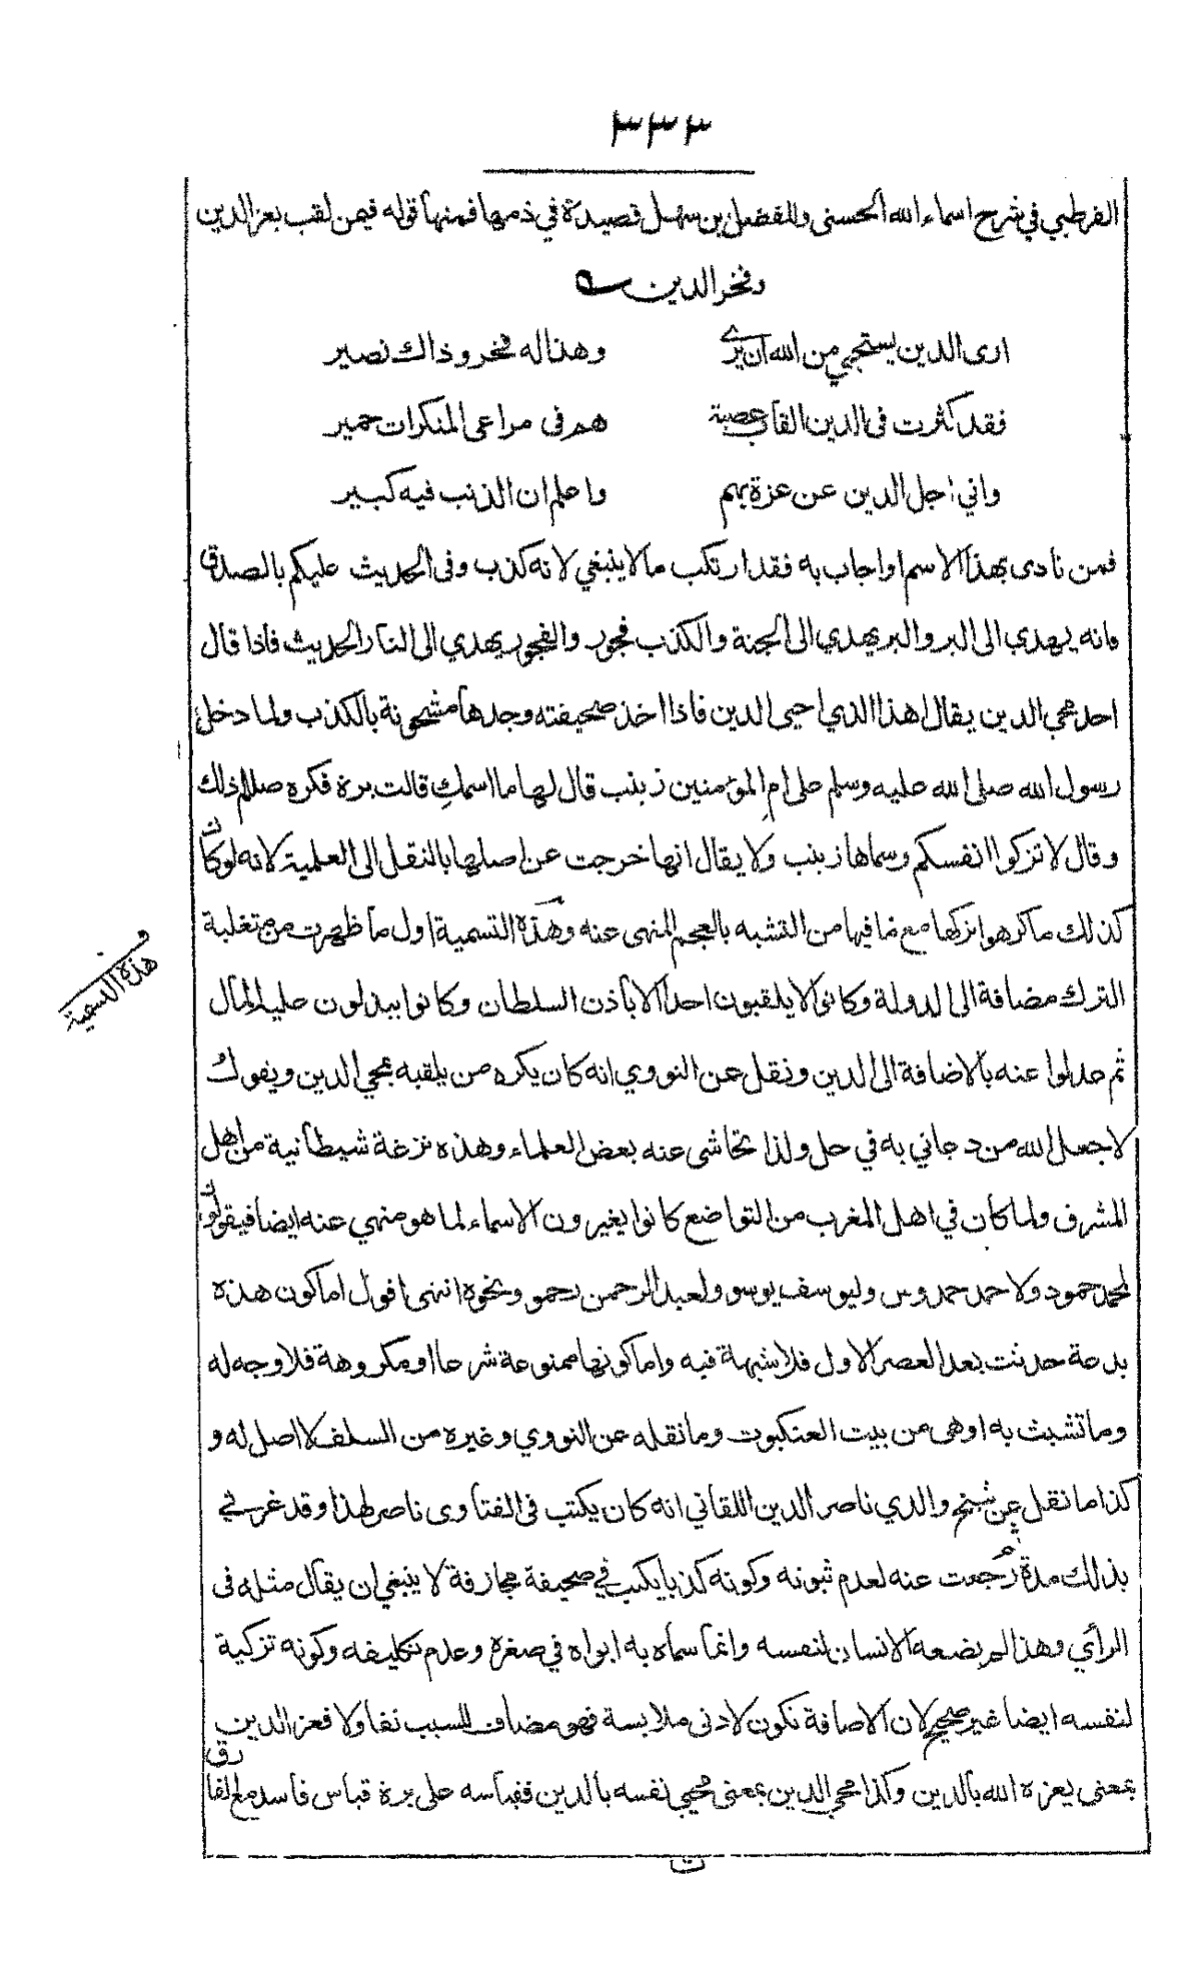 ٣٣٣
القرطبي في شرح اسماء الله الحسنى وللفضل بن سهل قصيدة في ذمها فمنها قوله فيمن لقب بعز الدين
وفخر الدين
ارى الدين يستحيي من الله ان يرى وهذا له فخر وذاك نصير
فقد كثرت فى الدين القاب عصبة هم فى مراعى المنكرات حمير
واني اجل الدين عن عزة بهم واعلم ان الذنب فيه كبير
فمن نادى بهذا الاسم او اجاب به فقد ارتكب ما لا ينبغي لانه كذب وفى الحديث عليكم بالصدق
فانه يهدي الى البر والبر يهدي الى الجنة والكذب فجور والفجور يهدي الى النار الحديث فاذا قال
احد محي الدين يقال اهذا الذي احيى الدين فاذا اخذ صحيفته وجدها مشحونة بالكذب ولما دخل
رسول الله صلى الله عليه وسلم على ام المؤمنين زينب قال لها ما اسمكِ قالت برة فكره صللم ذلك
وقال لا تزكوا انفسكم وسماها زينب ولا يقال انها خرجت عن اصلها بالنقل الى العلمية لانه لو كان
كذلك ما كرهوا تركها مع ما فيها من التشبه بالعجم المنهى عنه وهذه التسمية اول ما ظهرت من متغلبة
الترك مضافة الى الدولة وكانوا لا يلقبون احدا الا باذن السلطان وكانوا يبذلون عليه المال
ثم عدلوا عنه بالاضافة الى الدين ونقل عن النووي انه كان يكره من يلقبه بمحي الدين ويقول
لا جعل الله من دعاني به في حل ولذا تحاشى عنه بعض العلماء وهذه نزغة شيطانية من اهل
المشرق ولما كان في اهل المغرب من التواضع كانوا يغيرون الاسماء لما هو منهي عنه ايضا فيقولون
لمحمد حمود ولاحمد حمدوس وليوسف يوسو ولعبد الرحمن رحمو ونحوه انتهى اقول اما كون هذه
بدعة حدثت بعد العصر الاول فلا شبهة فيه واما كونها ممنوعة شرعا او مكروهة فلا وجه له
وما تشبث به اوهى من بيت العنكبوت وما نقله عن النووي وغيره من السلف لا اصل له و
كذا ما نقل عن شيخ والدي ناصر الدين اللقاني انه كان يكتب فى الفتاوى ناصر لهذا وقد غرني
بذلك مدة ثم رجعت عنه لعدم ثبوته وكونه كذبا يكتب في صحيفة مجازفة لا ينبغي ان يقال مثله فى
الرأي وهذا لم يضعه الانسان لنفسه وانما سماه به ابواه في صغره وعدم تكليفه وكونه تزكية
لنفسه ايضا غير صحيح لان الاضافة تكون لادنى ملابسة فهو مضاف للسبب تفاولا فعز الدين
بمعنى يعزه الله بالدين وكذا محي الدين بمعنى محيي نفسه بالدين فقياسه على برة قياس فاسد مع الفارق
وهذه التسمية